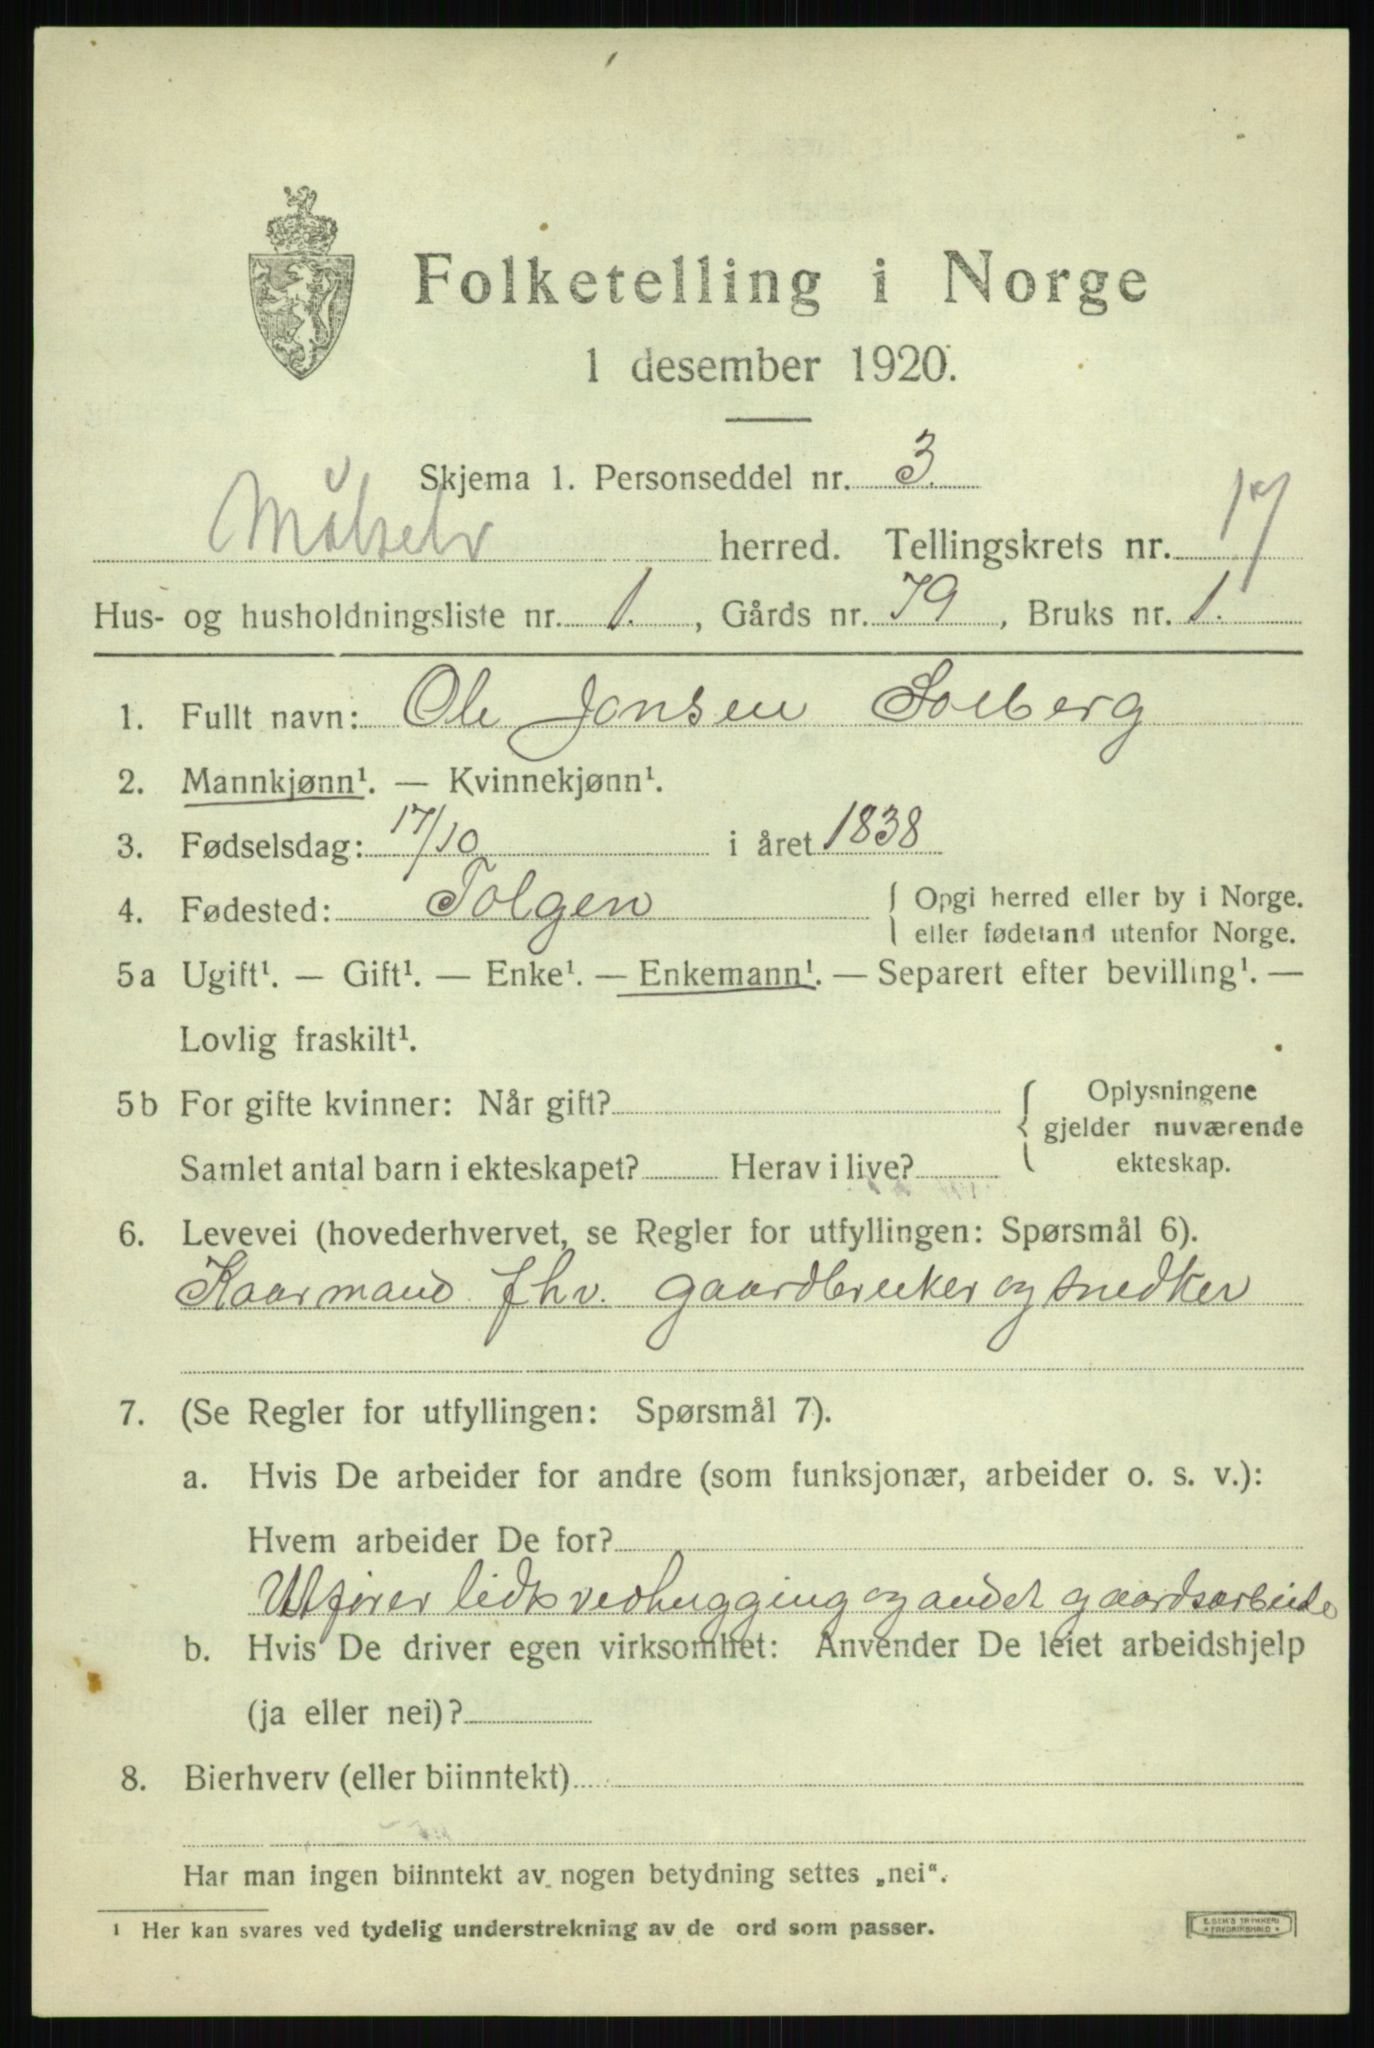 Folketelling i Norge
1 desember 1920.
Skjema 1. Personseddel nr. 3.
Målselv herred. Tellingskrets nr. 17
Hus- og husholdningsliste nr. 1., Gårds nr. 79, Bruks nr. 1.
1. Fullt navn: Ole Jonsen Solberg
2. Mannkjønn¹. — Kvinnekjønn¹.
3. Fødselsdag: 17/10 i året 1838
4. Fødested: Tolgen { Opgi herred eller by i Norge.
eller fødeland utenfor Norge.
5a Ugift¹. — Gift¹. — Enke¹. — Enkemann¹. — Separert efter bevilling¹. —
Lovlig fraskilt¹.
5b For gifte kvinner: Når gift? { Oplysningene
gjelder nuværende
Samlet antal barn i ekteskapet? Herav i live? ekteskap.
6. Levevei (hovederhvervet, se Regler for utfyllingen: Spørsmål 6).
Kaarmand fhv. gaardbruker og snedker
7. (Se Regler for utfyllingen: Spørsmål 7).
a. Hvis De arbeider for andre (som funksjonær, arbeider o. s. v.):
Hvem arbeider De for?
Utfører lidt vedhugging og andet gaardsarbeide
b. Hvis De driver egen virksomhet: Anvender De leiet arbeidshjelp
(ja eller nei)?
8. Bierhverv (eller biinntekt)
Har man ingen biinntekt av nogen betydning settes „nei“.
¹ Her kan svares ved tydelig understrekning av de ord som passer.
E. SEM'S TRYKKERI
* FREDRIKSHALD *